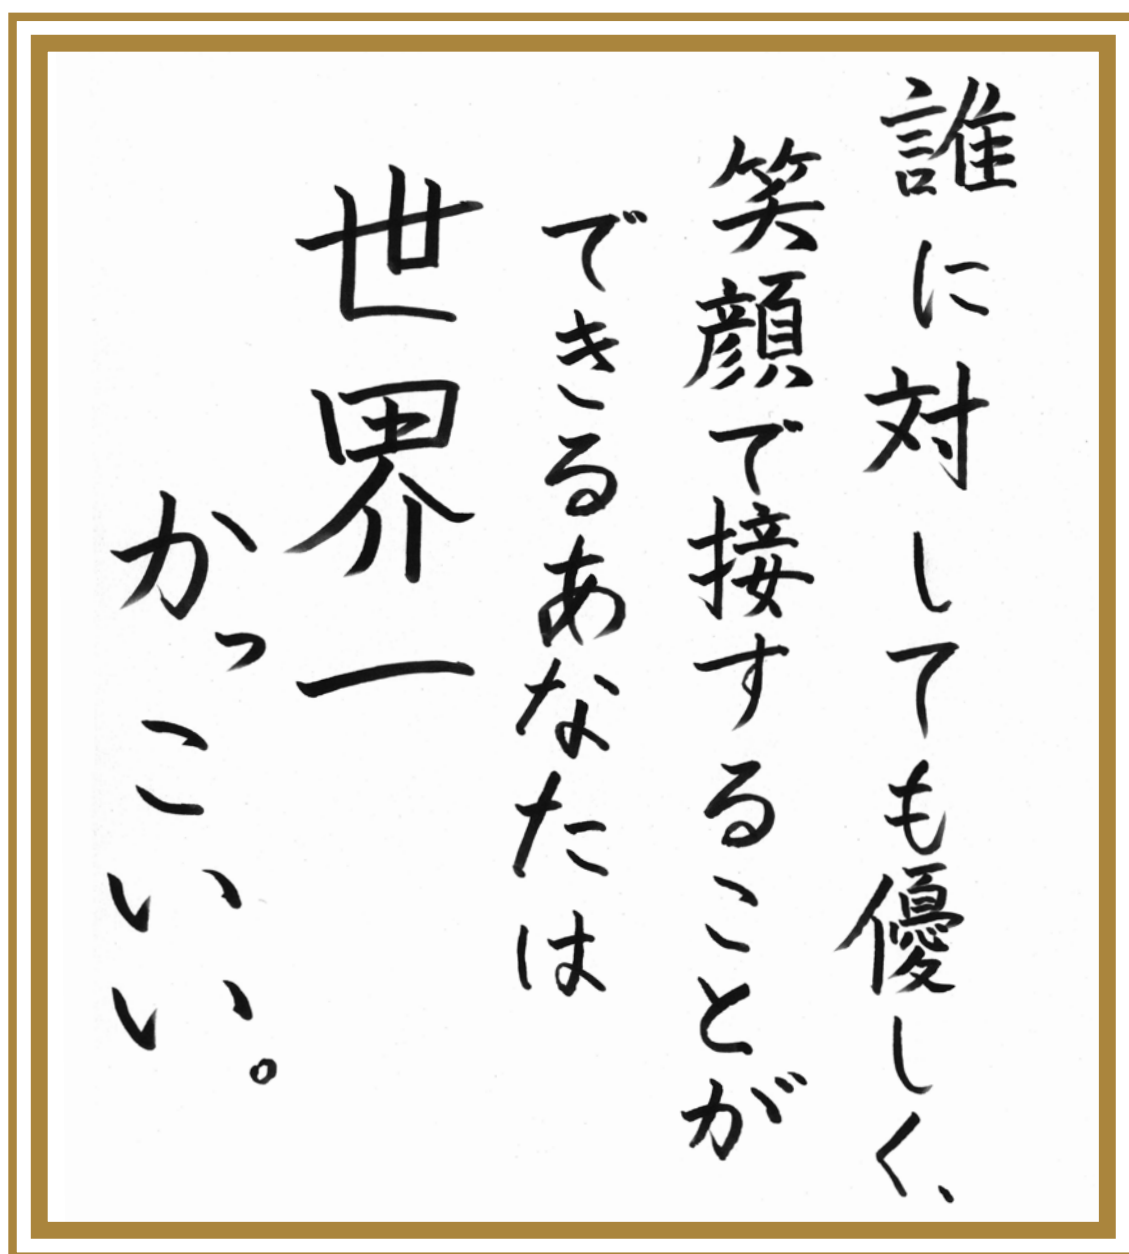 誰に対しても優しく、
笑顔で接することが
できるあなたは
世界一
かっこいい。